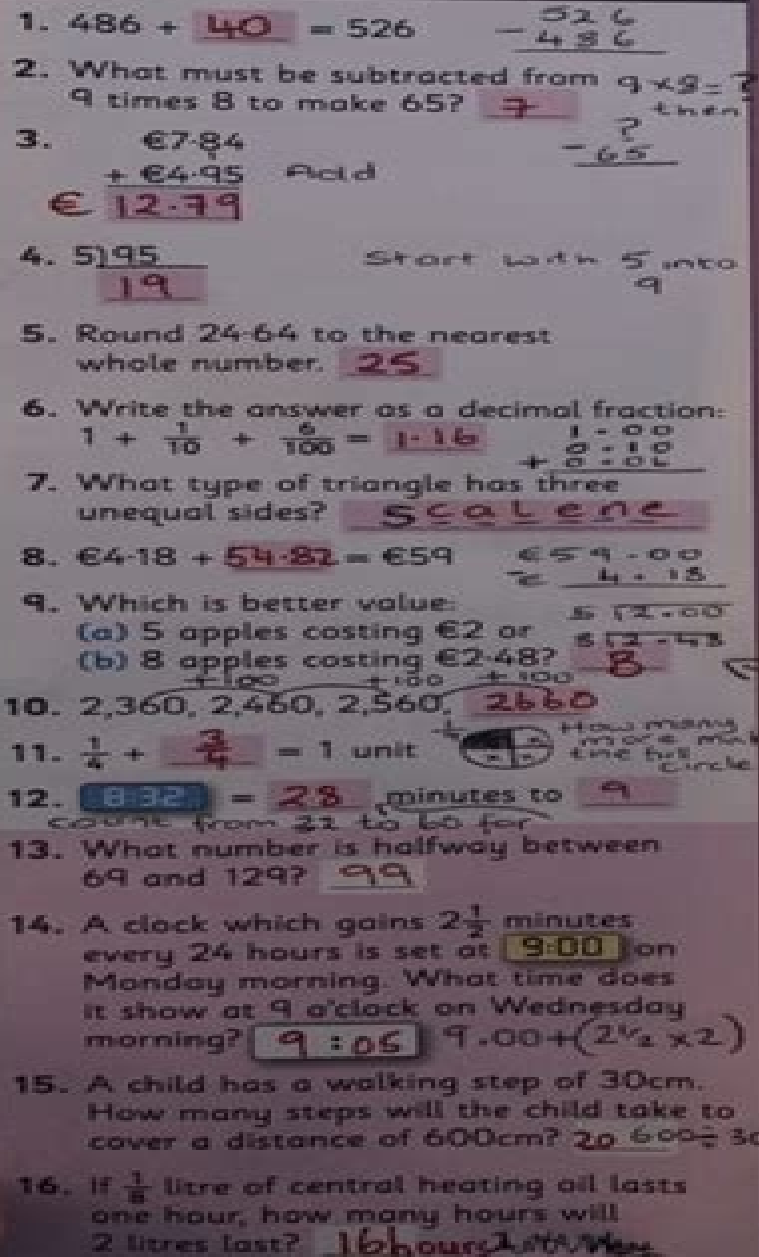 1. 486 + 40 = 526
526
- 486
2. What must be subtracted from
9 times 8 to make 65? 7
9 x 8 = ?
then
?
- 65
3. €7·84
+ €4·95 Add
€ 12·79
4. 5)95 Start with 5 into
19 9
5. Round 24·64 to the nearest
whole number. 25
6. Write the answer as a decimal fraction:
1 + 1/10 + 6/100 = 1·16
1·00
0·10
+ 0·06
7. What type of triangle has three
unequal sides? Scalene
8. €4·18 + 54·82 = €59
€59·00
- € 4·18
9. Which is better value:
(a) 5 apples costing €2 or
5)2·00
(b) 8 apples costing €2·48? B
8)2·48
+100 +100 +100
10. 2,360, 2,460, 2,560, 2660
11. 1/4 + 3/4 = 1 unit
How many
more
the full
circle
12. 8:32 = 28 minutes to 9
count from 32 to 60 for
13. What number is halfway between
69 and 129? 99
14. A clock which gains 2 1/2 minutes
every 24 hours is set at 9:00 on
Monday morning. What time does
it show at 9 o'clock on Wednesday
morning? 9:05 9.00+(2 1/2 x 2)
15. A child has a walking step of 30cm.
How many steps will the child take to
cover a distance of 600cm? 20 600÷30
16. If 1/8 litre of central heating oil lasts
one hour, how many hours will
2 litres last? 16hours